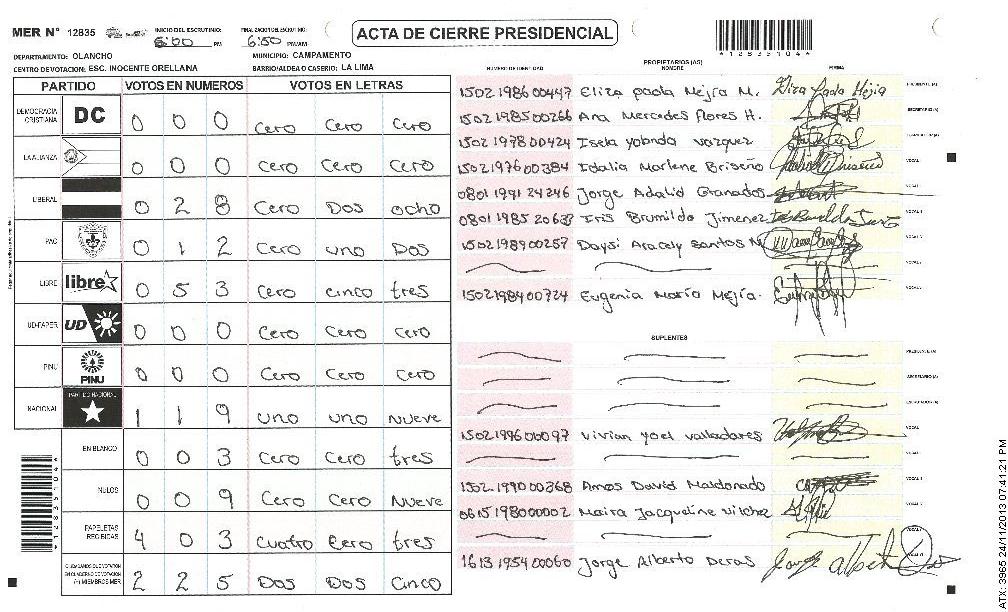 MER N° 12835 INICIO DEL ESCRUTINIO: 6:00 PM FINALIZACION DEL ESCRUTINIO: 6:50 PM/AM
ACTA DE CIERRE PRESIDENCIAL
*12835104*
DEPARTAMENTO: OLANCHO MUNICIPIO: CAMPAMENTO
CENTRO DE VOTACION: ESC. INOCENTE ORELLANA BARRIO/ALDEA O CASERIO: LA LIMA
PARTIDO VOTOS EN NUMEROS VOTOS EN LETRAS
DEMOCRACIA CRISTIANA DC 0 0 0 Cero Cero Cero
LA ALIANZA 0 0 0 Cero Cero Cero
LIBERAL 0 2 8 Cero Dos ocho
PAC 0 1 2 Cero uno Dos
LIBRE libre 0 5 3 Cero cinco tres
UD-FAPER UD 0 0 0 Cero Cero Cero
PINU PINU 0 0 0 Cero Cero Cero
NACIONAL PARTIDO NACIONAL 1 1 9 uno uno nueve
EN BLANCO 0 0 3 Cero Cero tres
NULOS 0 0 9 Cero Cero Nueve
PAPELETAS RECIBIDAS 4 0 3 cuatro Cero tres
(+) MIEMBROS MER 2 2 5 Dos Dos Cinco
PROPIETARIOS (AS)
NUMERO DE IDENTIDAD NOMBRE FIRMA
1502198600447 Eliza paola Mejia M. Eliza Paola Mejia PRESIDENTE (A)
1502198500266 Ana Mercedes flores H. SECRETARIO (A)
1502197800424 Isela yolanda vazquez ESCRUTADOR (A)
1502197600384 Idalia Marlene Briseño VOCAL
0801199124246 Jorge Adalid Granados VOCAL
0801198520633 Iris Brumilda Jimenez VOCAL
1502198900257 Daysi Aracely Santos VOCAL
VOCAL
1502198400724 Eugenia María Mejía. VOCAL
SUPLENTES
PRESIDENTE (A)
SECRETARIO (A)
ESCRUTADOR (A)
1502199600097 Vivian yoel valladares VOCAL
1502199000368 Amos David Maldonado VOCAL
0615198000002 Maira Jacqueline Vilchez VOCAL
VOCAL
1613195400060 Jorge Alberto Deras Jorge Alberto VOCAL
*12835104*
ATX: 3965 24/11/2013 07:41:21 PM